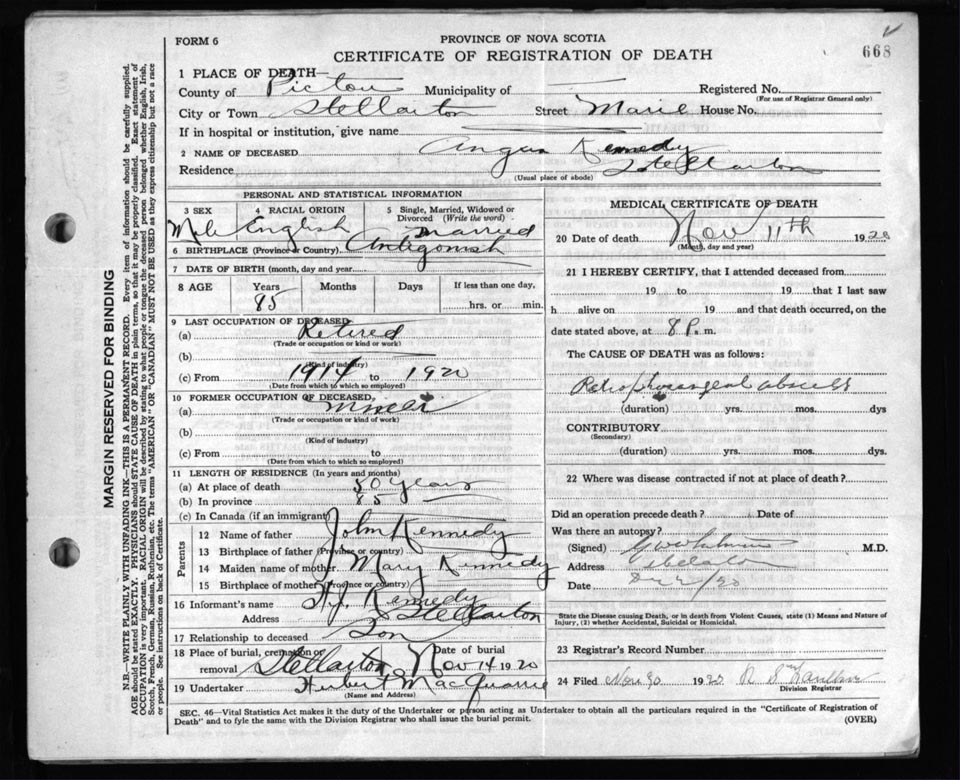 FORM 6
PROVINCE OF NOVA SCOTIA
CERTIFICATE OF REGISTRATION OF DEATH
668
1 PLACE OF DEATH—
County of Pictou Municipality of Registered No.
(For use of Registrar General only)
City or Town Stellarton Street Marie House No.
If in hospital or institution, give name
2 NAME OF DECEASED Angus Kennedy
Residence Stellarton
(Usual place of abode)
PERSONAL AND STATISTICAL INFORMATION
3 SEX 4 RACIAL ORIGIN 5 Single, Married, Widowed or Divorced (Write the word)
Male English Married
6 BIRTHPLACE (Province or Country) Antigonish
7 DATE OF BIRTH (month, day and year)
8 AGE Years Months Days If less than one day,
85 hrs. or min.
9 LAST OCCUPATION OF DECEASED
(a) Retired
(Trade or occupation or kind of work)
(b)
(Kind of industry)
(c) From 1914 to 1920
(Date from which to which employed)
10 FORMER OCCUPATION OF DECEASED,
(a) miner
(Trade or occupation or kind of work)
(b)
(Kind of industry)
(c) From to
(Date from which to which so employed)
11 LENGTH OF RESIDENCE (In years and months)
(a) At place of death 50 years
(b) In province 85
(c) In Canada (if an immigrant)
Parents
12 Name of father John Kennedy
13 Birthplace of father (Province or country)
14 Maiden name of mother Mary Kennedy
15 Birthplace of mother (Province or country)
16 Informant's name Kennedy
Address Stellarton
17 Relationship to deceased Son
18 Place of burial, cremation or removal Stellarton Date of burial Nov 14 1920
19 Undertaker Hubert MacQuarrie
(Name and Address)
MEDICAL CERTIFICATE OF DEATH
20 Date of death Nov 11th 1920
(Month, day and year)
21 I HEREBY CERTIFY, that I attended deceased from
19 to 19 that I last saw
h alive on 19 and that death occurred, on the
date stated above, at 8 P. m.
The CAUSE OF DEATH was as follows:
Retropharyngeal abscess
(duration) yrs. mos. dys
CONTRIBUTORY
(Secondary)
(duration) yrs. mos. dys.
22 Where was disease contracted if not at place of death?
Did an operation precede death? Date of
Was there an autopsy?
(Signed) M.D.
Address Stellarton
Date
State the Disease causing Death, or in death from Violent Causes, state (1) Means and Nature of
Injury, (2) whether Accidental, Suicidal or Homicidal.
23 Registrar's Record Number
24 Filed Nov 1920
Division Registrar
SEC. 46—Vital Statistics Act makes it the duty of the Undertaker or person acting as Undertaker to obtain all the particulars required in the "Certificate of Registration of
Death" and to fyle the same with the Division Registrar who shall issue the burial permit.
(OVER)
MARGIN RESERVED FOR BINDING
N.B.—WRITE PLAINLY WITH UNFADING INK—THIS IS A PERMANENT RECORD. Every item of information should be carefully supplied.
AGE should be stated EXACTLY. PHYSICIANS should STATE CAUSE OF DEATH in plain terms, so that it may be properly classified. Exact statement of
OCCUPATION is very important. RACIAL ORIGIN will be described by stating to what people or tongue the deceased person belonged whether English, Irish,
Scotch, French, German, Russian, Ruthenian, etc. The terms "AMERICAN" OR "CANADIAN" MUST NOT BE USED as they express citizenship but not a race
or people. See instructions on back of Certificate.